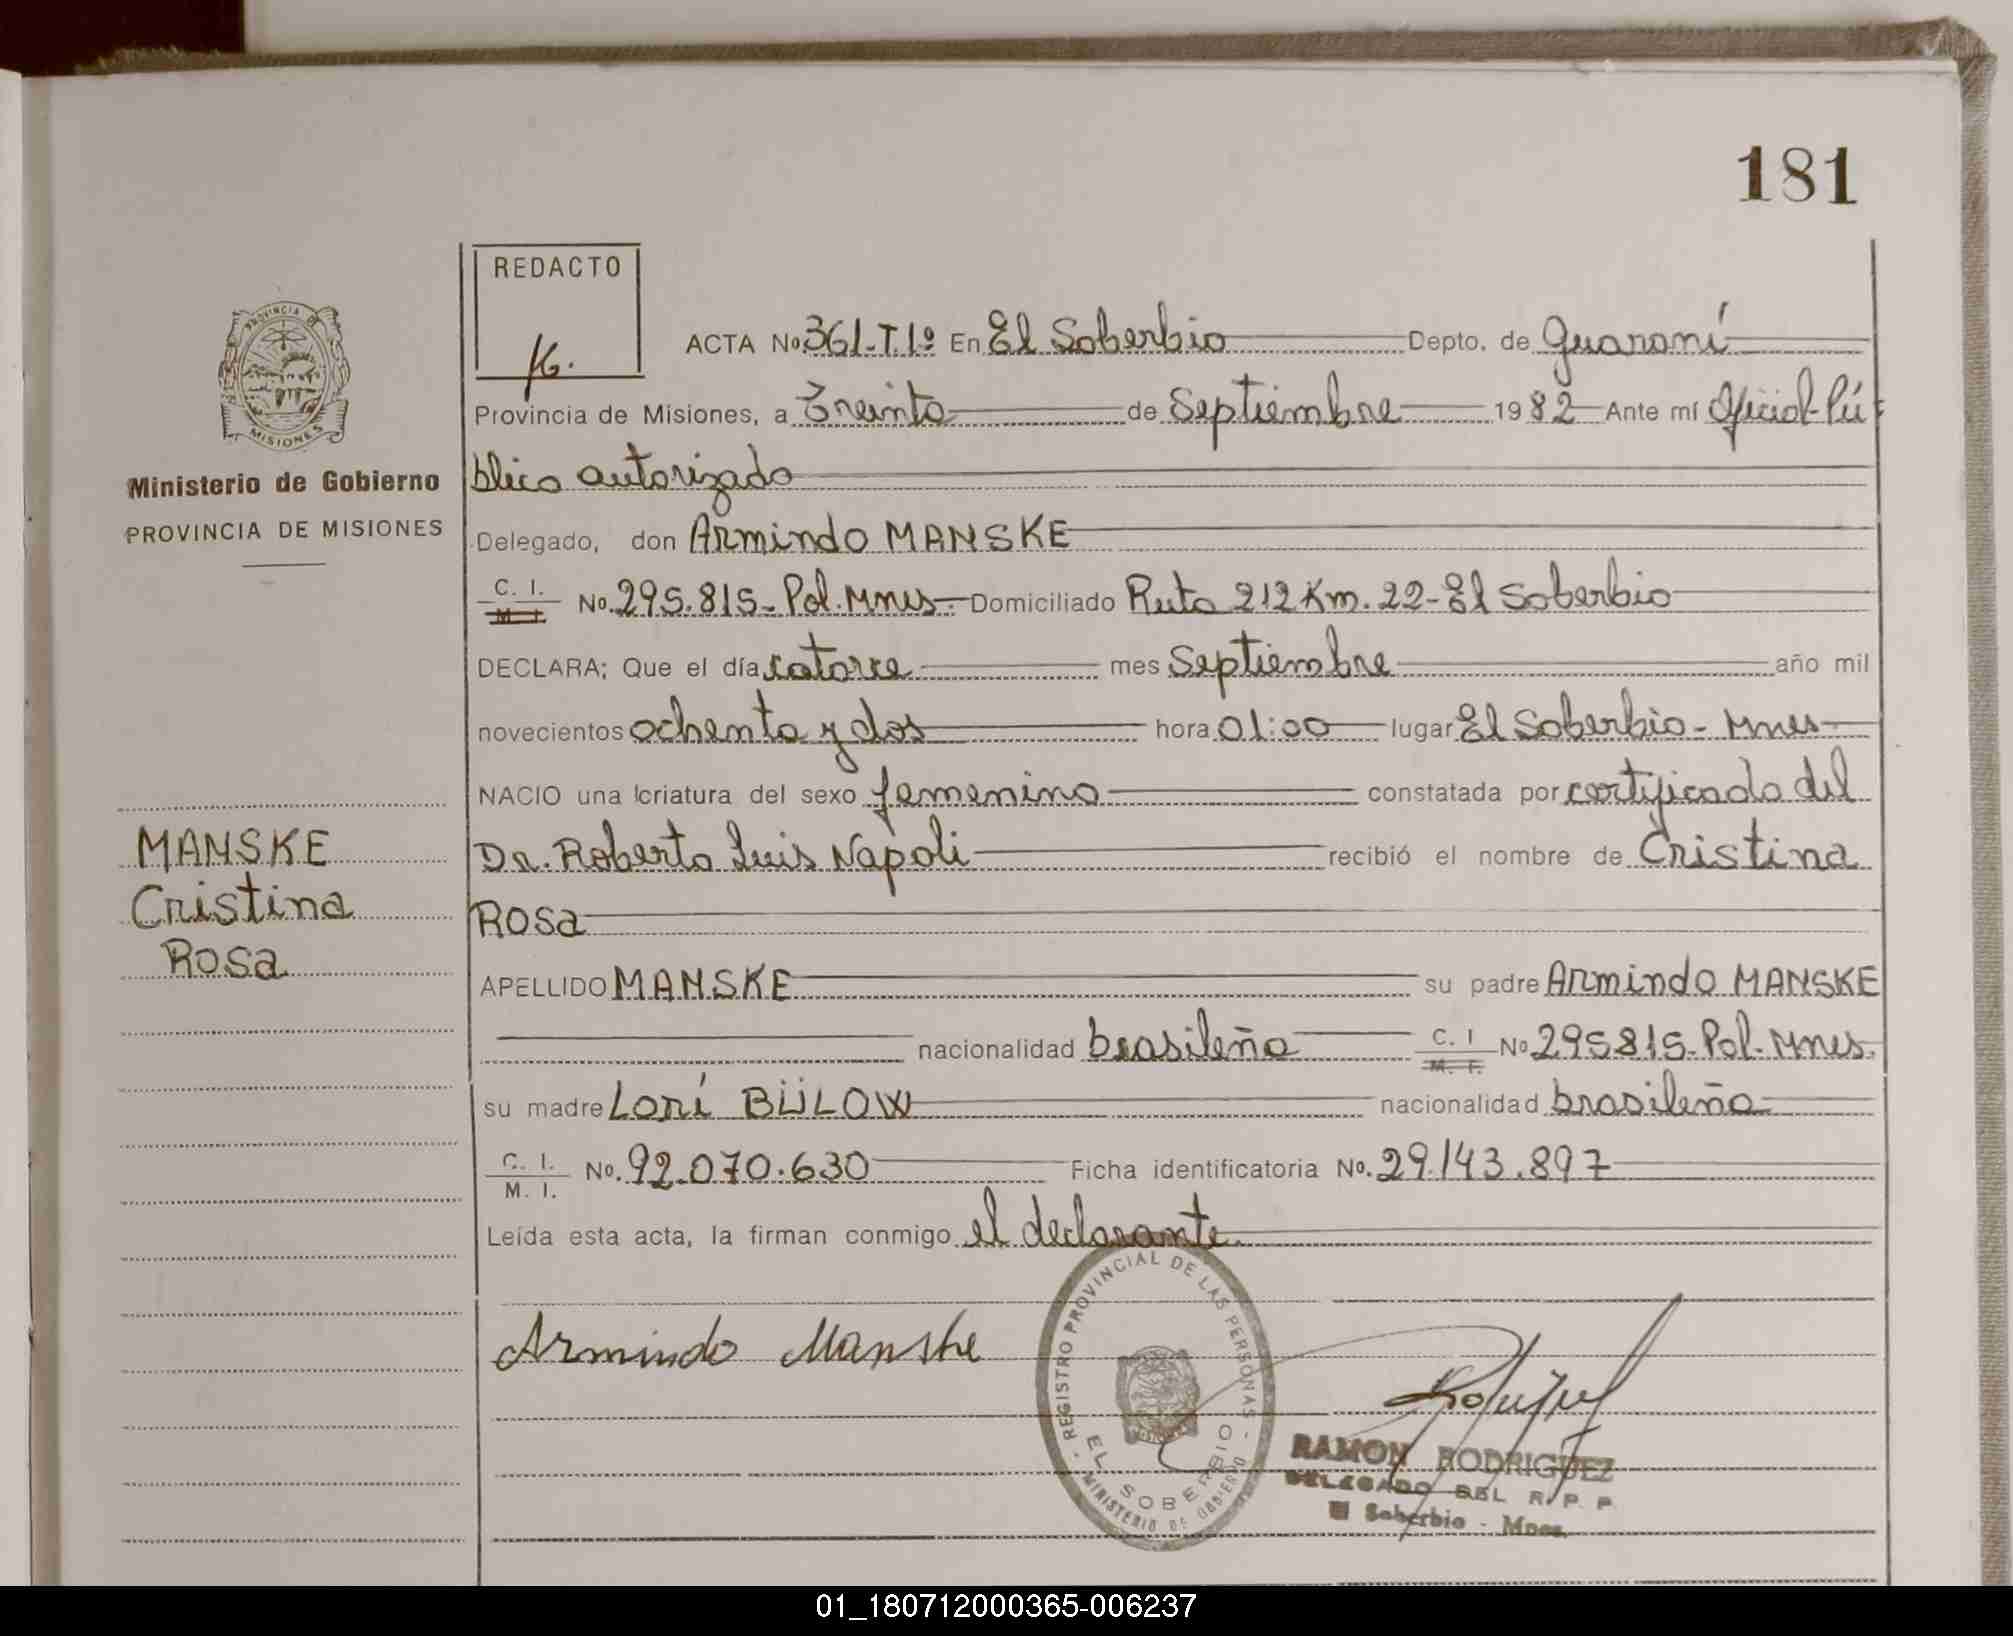 181
REDACTO
PROVINCIA DE
MISIONES
Ministerio de Gobierno
PROVINCIA DE MISIONES
ACTA No 361-T.1º En El Soberbio Depto. de Guaraní
Provincia de Misiones, a Treinta de Septiembre 1982 Ante mí Oficial Pú
blico autorizado
Delegado, don Armindo MANSKE
C. I. M. I. No. 295.815- Pol. Mnes. Domiciliado Ruta 212 Km. 22- El Soberbio
DECLARA; Que el día catorce mes Septiembre año mil
novecientos ochenta y dos hora 01:00 lugar El Soberbio - Mnes
NACIO una criatura del sexo femenino constatada por certificado del
Dr. Roberto Luis Napoli recibió el nombre de Cristina
Rosa
MANSKE
Cristina
Rosa
APELLIDO MANSKE su padre Armindo MANSKE
nacionalidad brasileña C. I M. I. No 295815- Pol. Mnes.
su madre Lorí BÜLOW nacionalidad brasileña
C. I. M. I. No. 92.070.630 Ficha identificatoria No. 29.143.897
Leída esta acta, la firman conmigo el declarante.
Armindo Manske
- REGISTRO PROVINCIAL DE LAS PERSONAS -
EL SOBERBIO
MINISTERIO DE GOBIERNO
RAMON RODRIGUEZ
DELEGADO DEL R. P. P.
El Soberbio - Mnes.
01_180712000365-006237